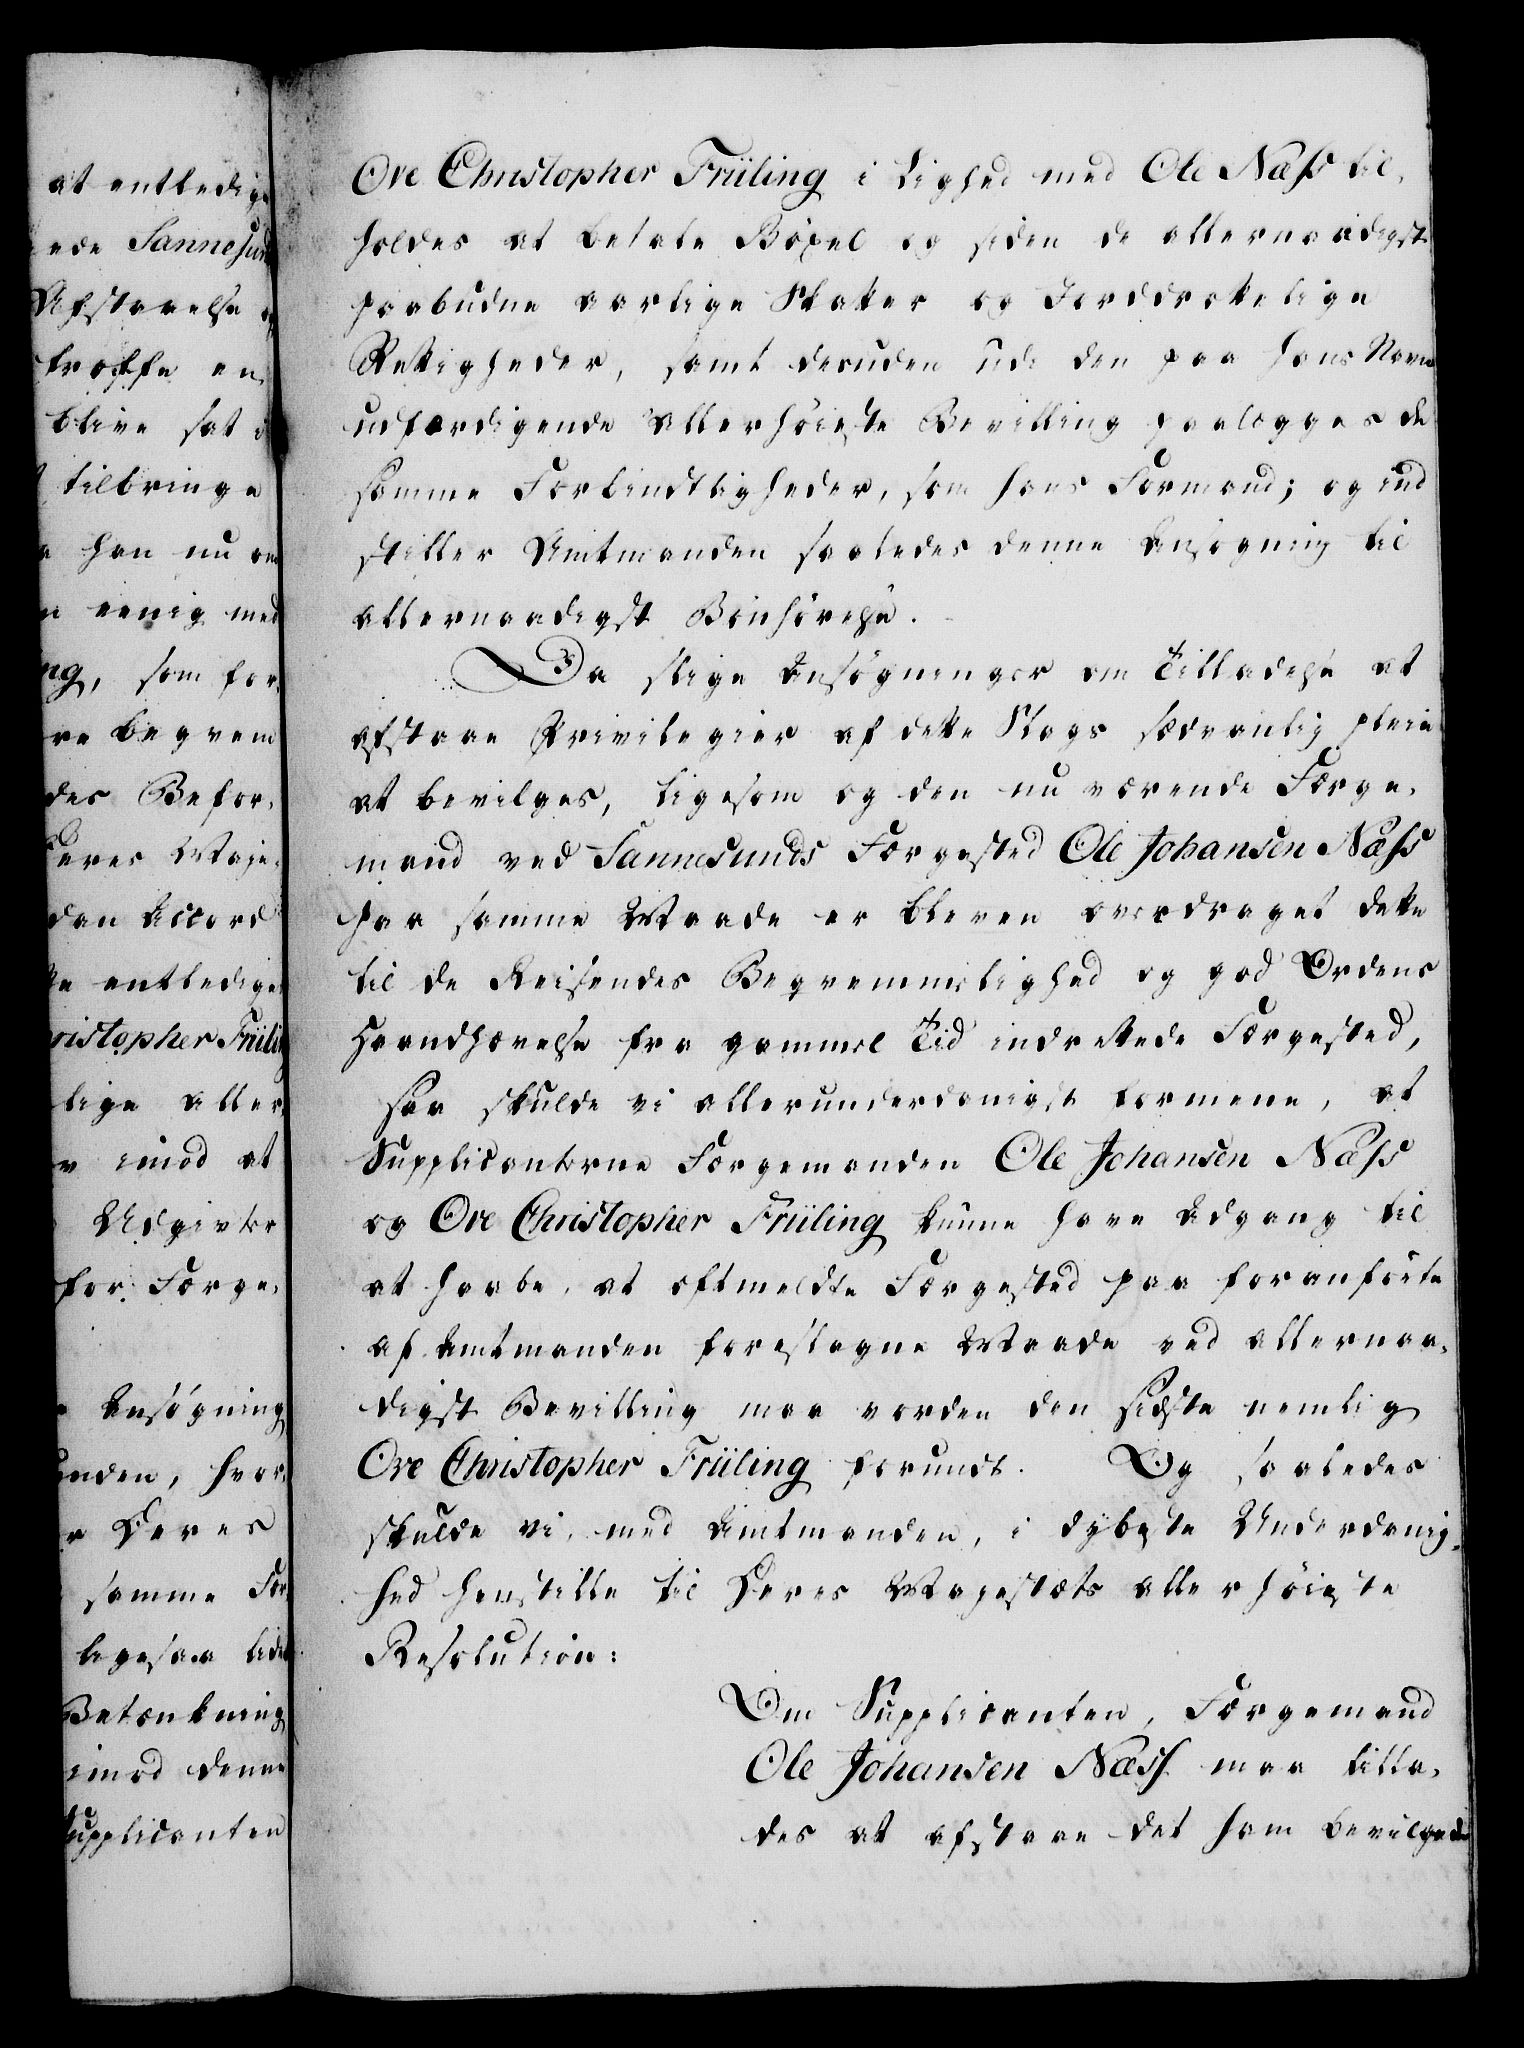 at entledige
ede Sannesund
Afstaaelse
troffe en
blive sat
tilbringe
han nu
eenig med
ng, som for
re beqvem
des Befor-
Deres Maje-
dan Accord
entlediges
ristopher Früling
lige aller
imod at
Udgivter
for Færge-
Ansøgning
anden, hvor
Deres
samme Fær
ligesaa lidet
Betænkning
imod denne
Supplicanten
Ove Christopher Früling i Lighed med Ole Næss til-
holdes at betale Bøxel og siden de allernaadigst
paabudne aarlige Skatter og Jorddrottelige
Rettigheder, samt desuden udi den paa hans Navn
udfærdigende allerhøieste Bevilling paalægges de
samme Forbindtligheder, som hans Formand; og ind
stiller Amtmanden saaledes denne Ansøgning til
allernaadigst Bønhørelse.
Da slige Ansøgninger om Tilladelse at
afstaae Privilegier af dette Slags sædvanlig pleie
at bevilges, ligesom og den nu værende Færge-
mand ved Sannesunds Færgested Ole Johansen Næss
paa samme Maade er bleven overdraget dette
til de Reisendes Beqvemmelighed og god Ordens
Haandhævelse fra gammel Tid indrettede Færgested,
saa skulde vi allerunderdanigst formene, at
Supplicanterne Færgemanden Ole Johansen Næss
og Ove Christopher Früling kunne have Adgang til
at haabe, at oftmeldte Færgested paa foranførte
af Amtmanden foreslagne Maade ved allernaa-
digst Bevilling maa vorden den sidste nemlig
Ove Christopher Früling forundt. Og saaledes
skulde vi, med Amtmanden, i dybeste Underdanig-
hed henstille til Deres Majestæts allerhøieste
Resolution:
Om Supplicanten, Færgemand
Ole Johansen Næss maa tilla-
des at afstaae det ham bevilgede